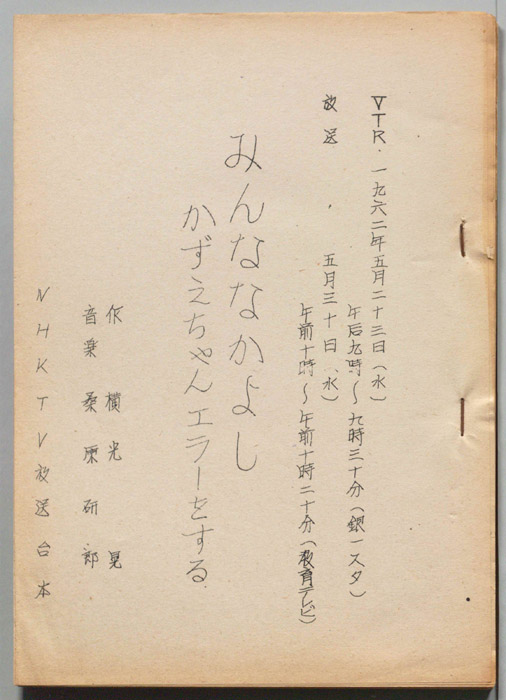 VTR・一九六二年五月二十三日(水)
午后九時〜九時三十分(銀一スタ)
放送・五月三十日(水)
午前十時〜午前十時二十分(教育テレビ)
みんななかよし
かずえちゃんエラーをする
作 横光 晃
音楽 桑原研郎
NHKTV放送台本